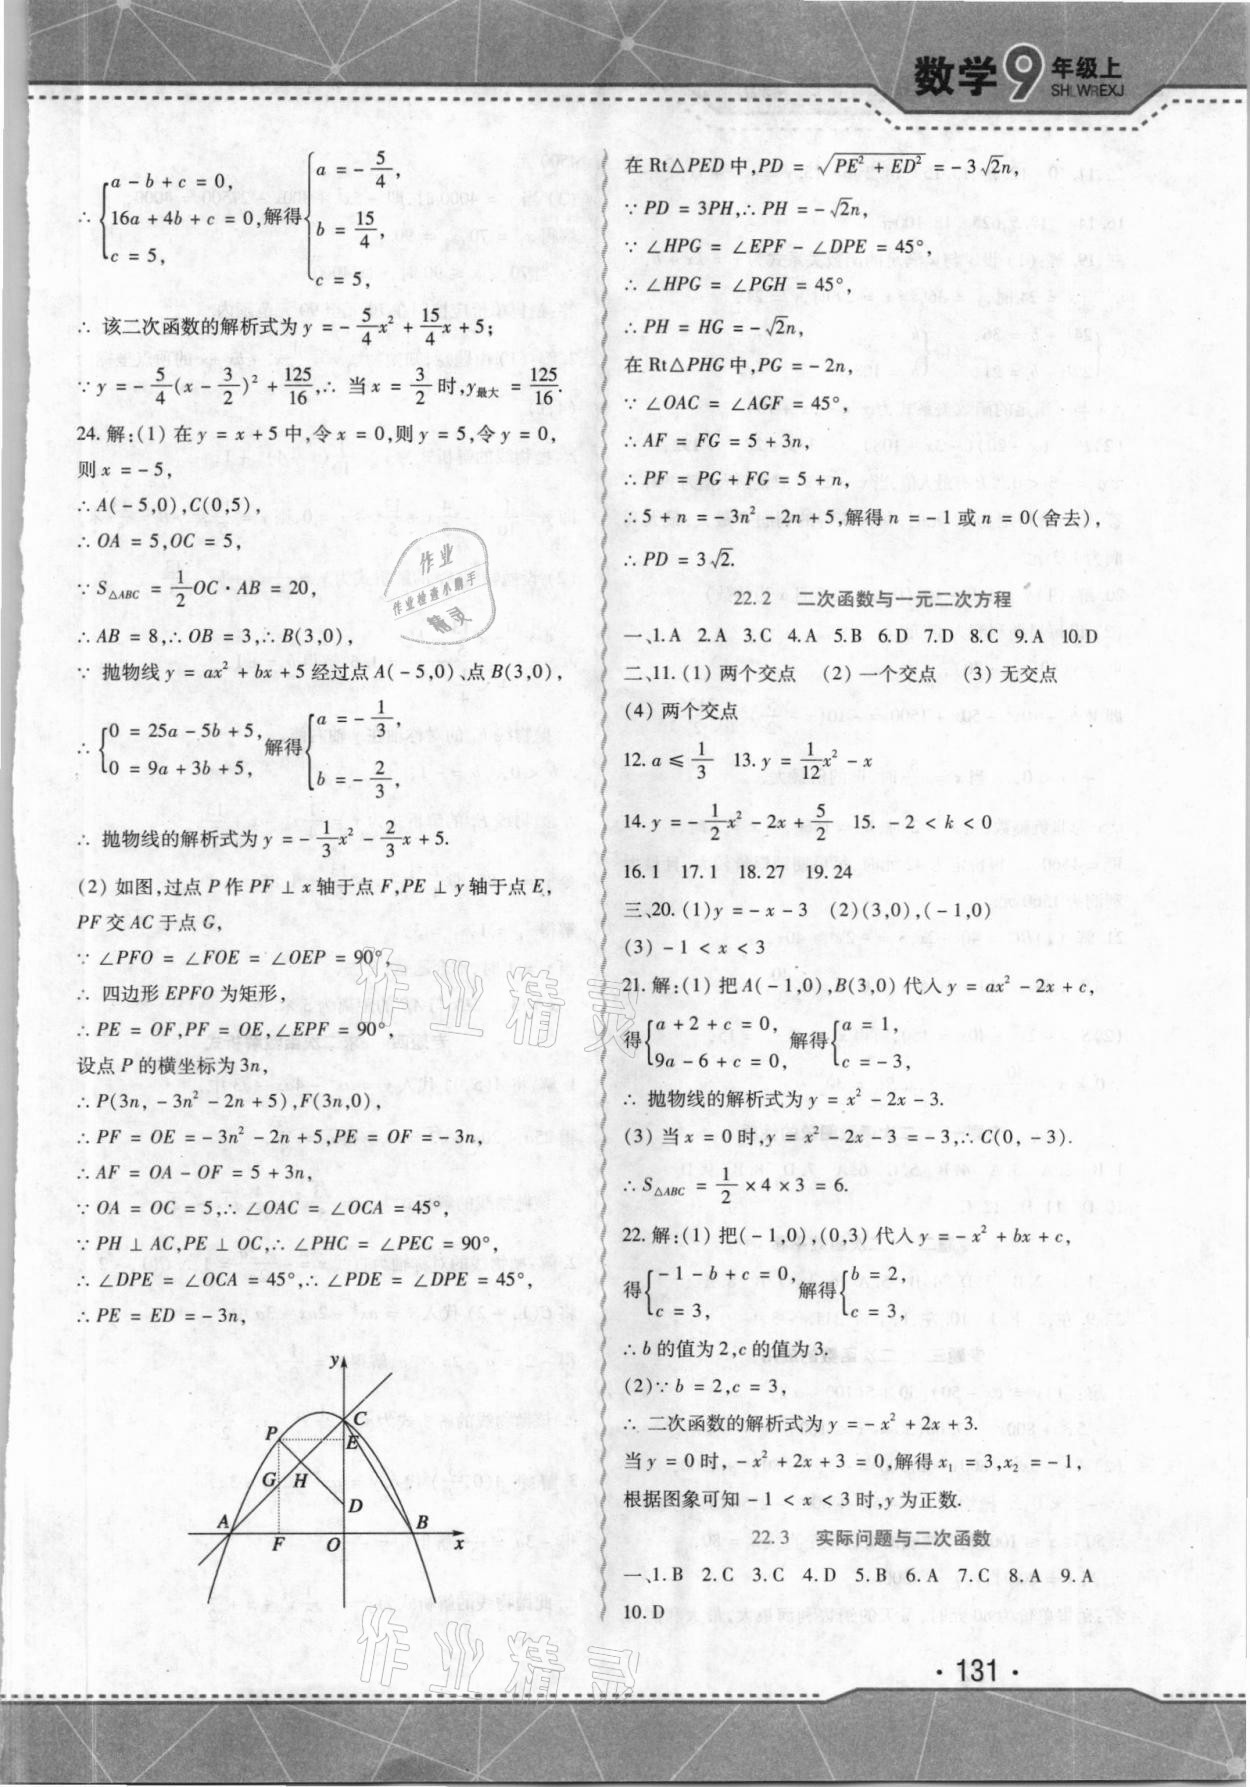 数学9年级上
SHLWREXJ
∴ {a－b＋c＝0, 16a＋4b＋c＝0, c＝5, 解得 {a＝－5/4, b＝15/4, c＝5,
∴ 该二次函数的解析式为 y＝－5/4x²＋15/4x＋5;
∵ y＝－5/4(x－3/2)²＋125/16,∴ 当 x＝3/2 时,y最大＝125/16.
24.解:(1) 在 y＝x＋5 中,令 x＝0,则 y＝5,令 y＝0,
则 x＝－5,
∴ A(－5,0),C(0,5),
∴ OA＝5,OC＝5,
∵ S△ABC＝1/2OC·AB＝20,
∴ AB＝8,∴ OB＝3,∴ B(3,0),
∵ 抛物线 y＝ax²＋bx＋5 经过点 A(－5,0)、点 B(3,0),
∴ {0＝25a－5b＋5, 0＝9a＋3b＋5, 解得 {a＝－1/3, b＝－2/3,
∴ 抛物线的解析式为 y＝－1/3x²－2/3x＋5.
(2) 如图,过点 P 作 PF⊥x 轴于点 F,PE⊥y 轴于点 E,
PF 交 AC 于点 G,
∵ ∠PFO＝∠FOE＝∠OEP＝90°,
∴ 四边形 EPFO 为矩形,
∴ PE＝OF,PF＝OE,∠EPF＝90°,
设点 P 的横坐标为 3n,
∴ P(3n,－3n²－2n＋5),F(3n,0),
∴ PF＝OE＝－3n²－2n＋5,PE＝OF＝－3n,
∴ AF＝OA－OF＝5＋3n,
∵ OA＝OC＝5,∴ ∠OAC＝∠OCA＝45°,
∵ PH⊥AC,PE⊥OC,∴ ∠PHC＝∠PEC＝90°,
∴ ∠DPE＝∠OCA＝45°,∴ ∠PDE＝∠DPE＝45°,
∴ PE＝ED＝－3n,
y
C
P
E
G H
D
A
F
O
B
x
在 Rt△PED 中,PD＝√(PE²＋ED²)＝－3√2n,
∵ PD＝3PH,∴ PH＝－√2n,
∵ ∠HPG＝∠EPF－∠DPE＝45°,
∴ ∠HPG＝∠PGH＝45°,
∴ PH＝HG＝－√2n,
在 Rt△PHG 中,PG＝－2n,
∵ ∠OAC＝∠AGF＝45°,
∴ AF＝FG＝5＋3n,
∴ PF＝PG＋FG＝5＋n,
∴ 5＋n＝－3n²－2n＋5,解得 n＝－1 或 n＝0(舍去),
∴ PD＝3√2.
22.2 二次函数与一元二次方程
一、1.A 2.A 3.C 4.A 5.B 6.D 7.D 8.C 9.A 10.D
二、11.(1) 两个交点 (2) 一个交点 (3) 无交点
(4) 两个交点
12. a≤1/3 13. y＝1/12x²－x
14. y＝－1/2x²－2x＋5/2 15. －2＜k＜0
16.1 17.1 18.27 19.24
三、20.(1)y＝－x－3 (2)(3,0),(－1,0)
(3)－1＜x＜3
21.解:(1) 把 A(－1,0),B(3,0) 代入 y＝ax²－2x＋c,
得 {a＋2＋c＝0, 9a－6＋c＝0, 解得 {a＝1, c＝－3,
∴ 抛物线的解析式为 y＝x²－2x－3.
(3) 当 x＝0 时,y＝x²－2x－3＝－3,∴ C(0,－3).
∴ S△ABC＝1/2×4×3＝6.
22.解:(1) 把(－1,0),(0,3) 代入 y＝－x²＋bx＋c,
得 {－1－b＋c＝0, c＝3, 解得 {b＝2, c＝3,
∴ b 的值为 2,c 的值为 3.
(2)∵ b＝2,c＝3,
∴ 二次函数的解析式为 y＝－x²＋2x＋3.
当 y＝0 时,－x²＋2x＋3＝0,解得 x₁＝3,x₂＝－1,
根据图象可知－1＜x＜3 时,y 为正数.
22.3 实际问题与二次函数
一、1.B 2.C 3.C 4.D 5.B 6.A 7.C 8.A 9.A
10.D
·131·
作业
作业检查小助手
精灵
作业精灵
作业精灵